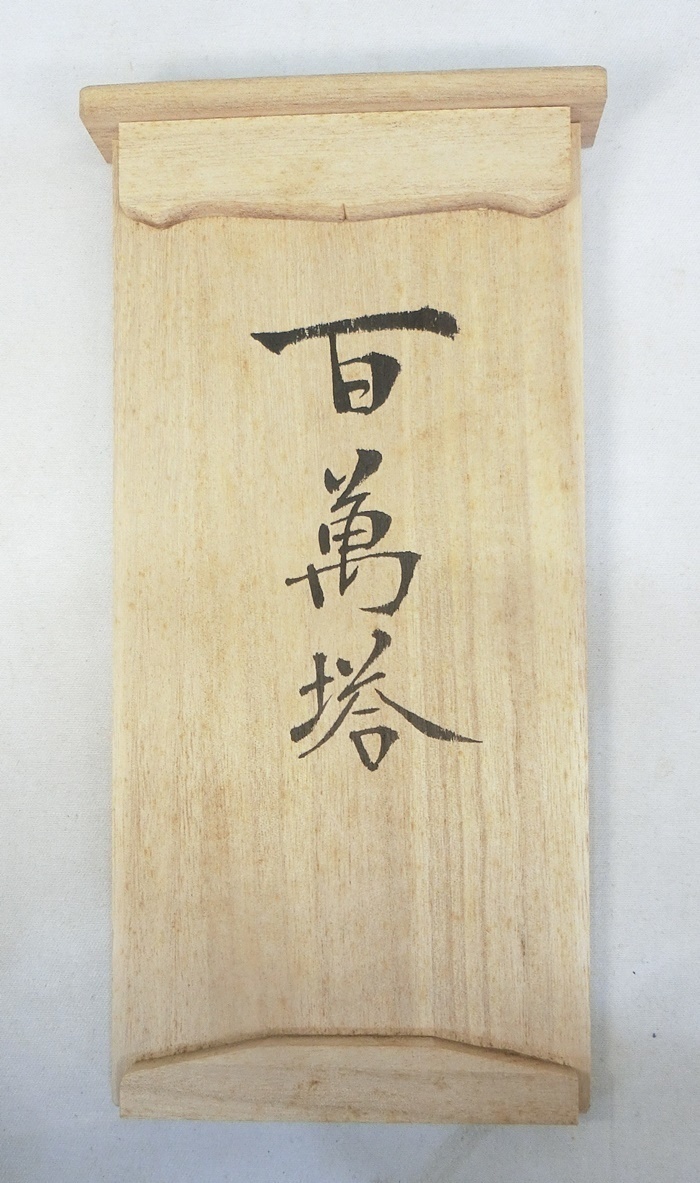 百萬塔